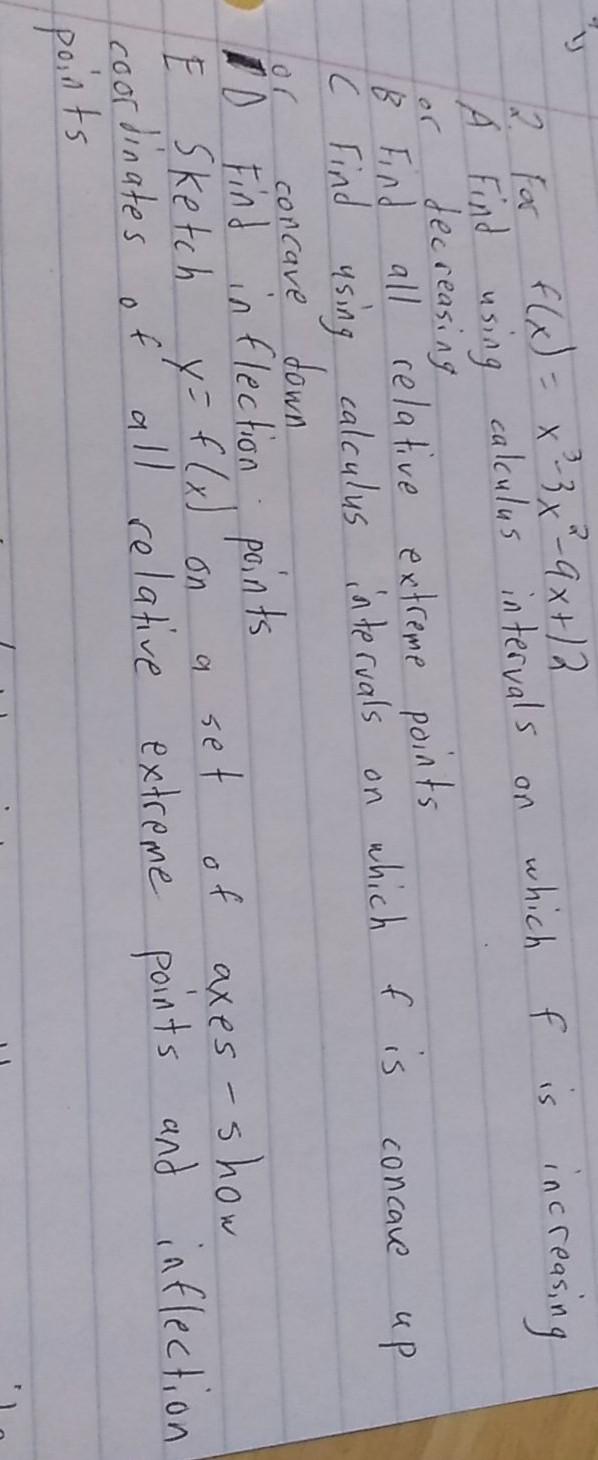 2. For f(x) = x³-3x²-9x+12
A Find using calculus intervals on which f is increasing
or decreasing
B Find all relative extreme points
C Find using calculus intervals on which f is concave up
or concave down
D Find inflection points
E Sketch y=f(x) on a set of axes - show
coordinates of all relative extreme points and inflection
points